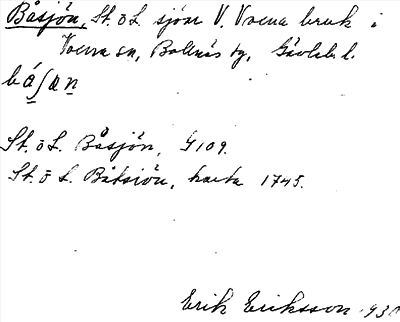 Båsjön, St. o L. sjön V. Voxna bruk i
Voxna sn, Bollnäs tg, Gävleb. l.
båʃɑn
St. o L. Båsjön, G 109.
St. o L. Båtsiön, karta 1745.
Erik Eriksson 193